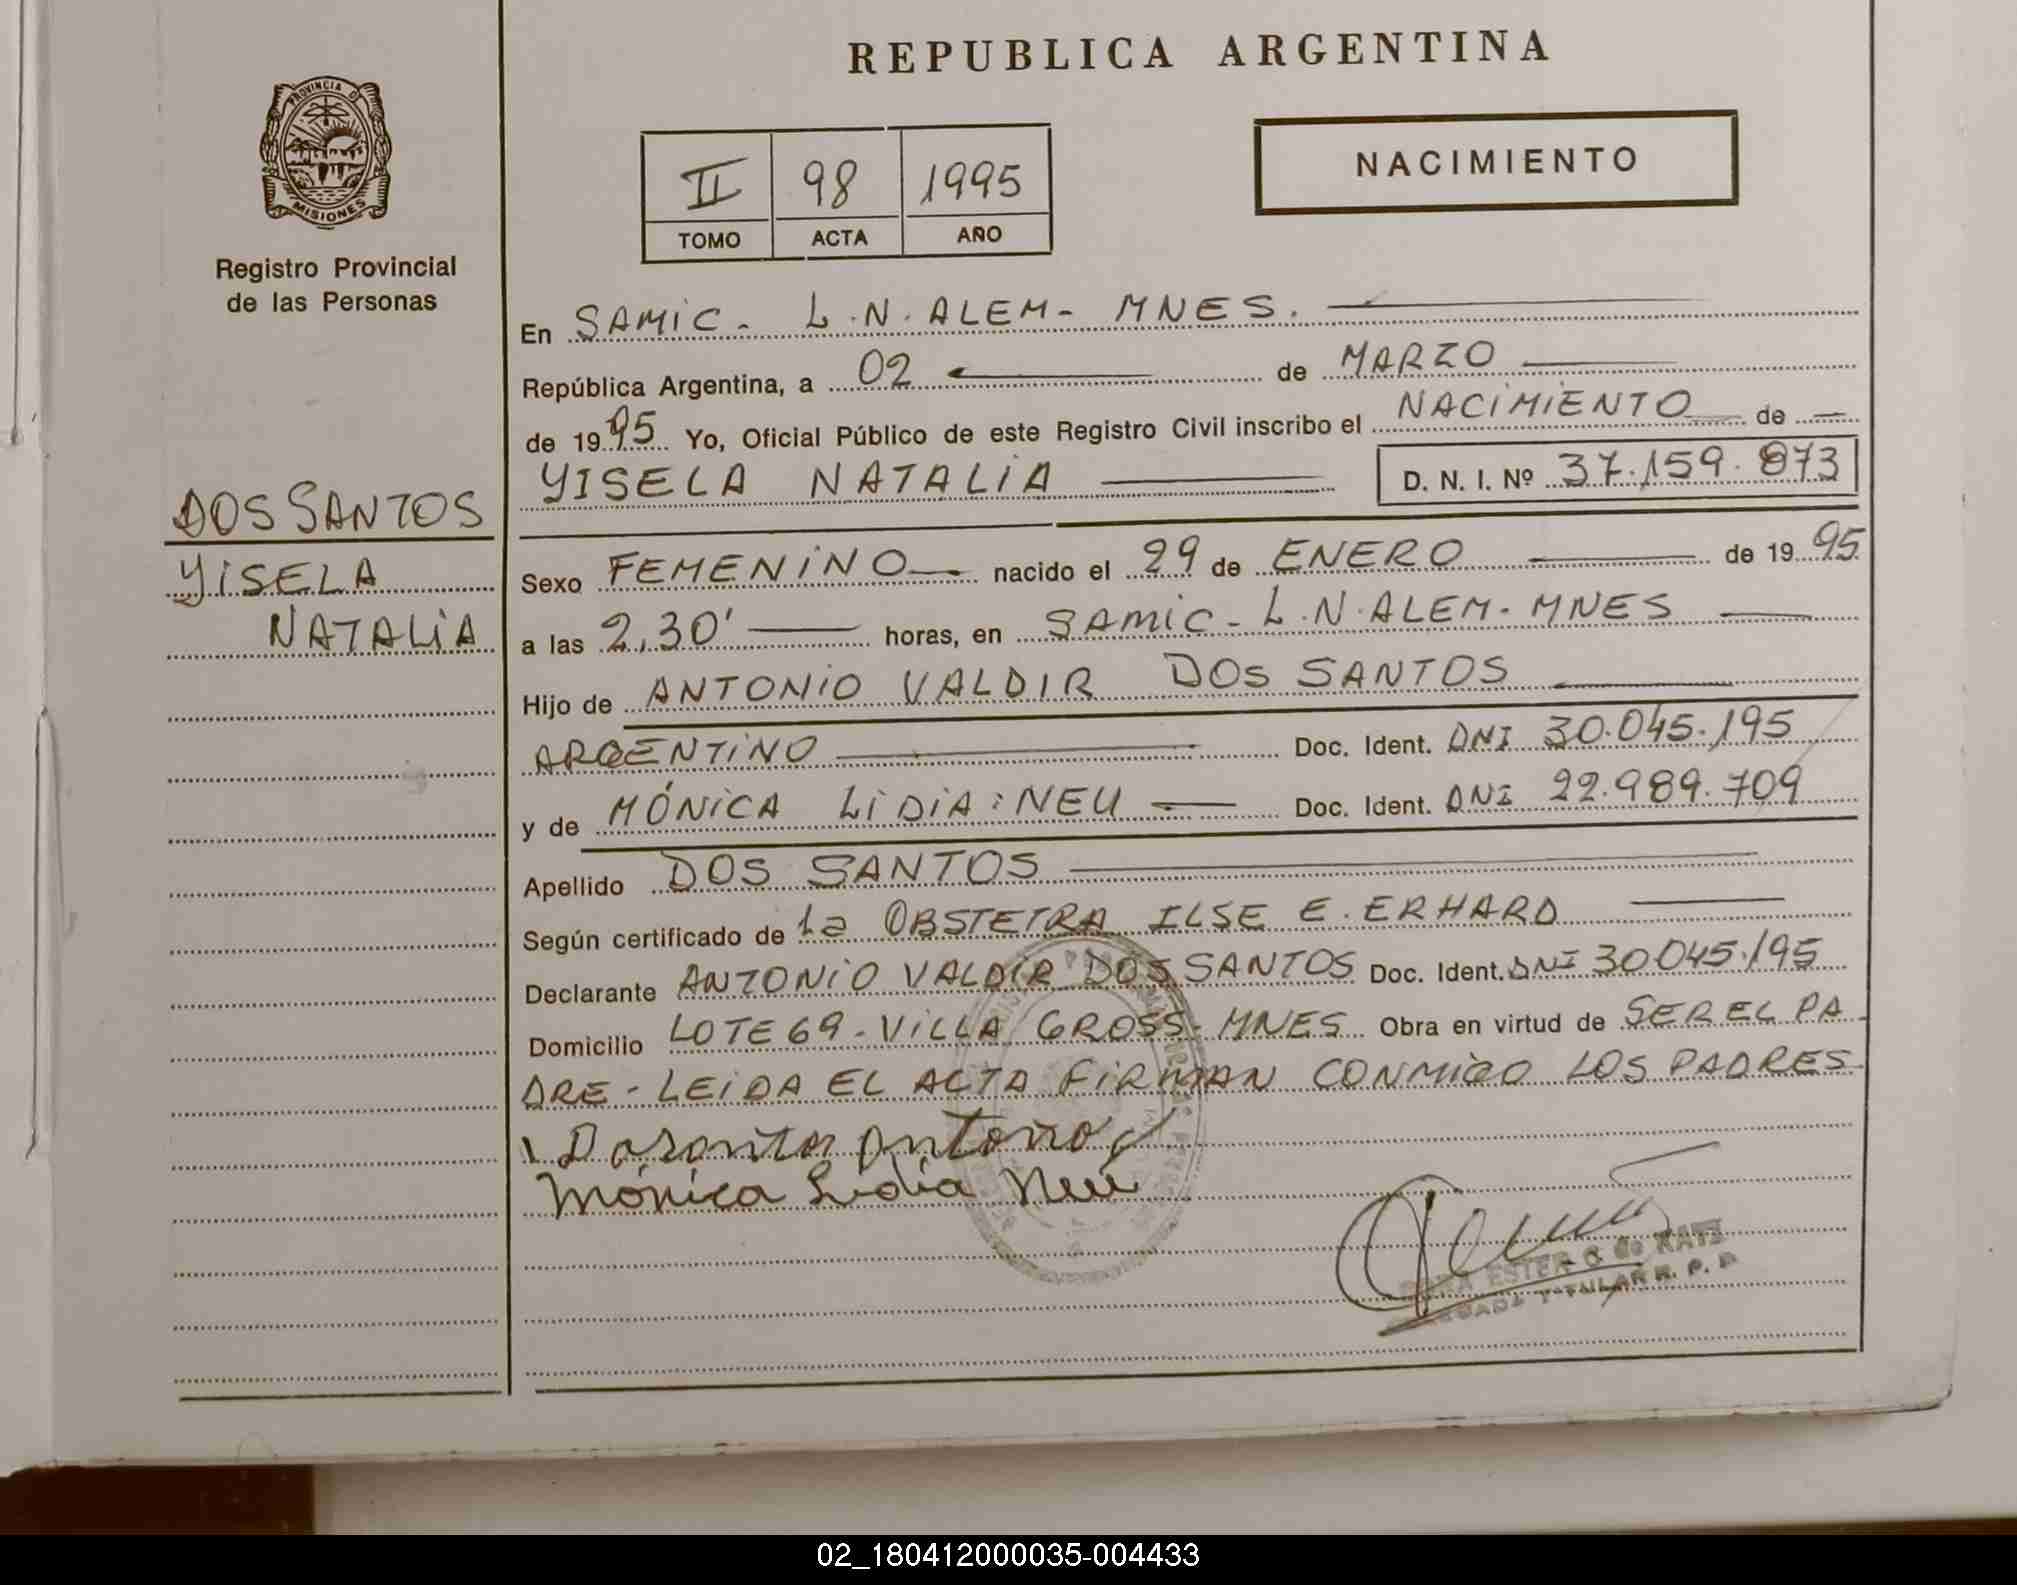 REPUBLICA ARGENTINA
PROVINCIA DE
MISIONES
Registro Provincial
de las Personas
II 98 1995
TOMO ACTA AÑO
NACIMIENTO
DOS SANTOS
YISELA
NATALIA
En SAMIC - L.N. ALEM - MNES.
República Argentina, a 02 de MARZO
de 1995 Yo, Oficial Público de este Registro Civil inscribo el NACIMIENTO de
YISELA NATALIA D. N. I. Nº 37.159.873
Sexo FEMENINO nacido el 29 de ENERO de 1995
a las 2,30' horas, en SAMIC - L.N. ALEM - MNES
Hijo de ANTONIO VALDIR DOS SANTOS
ARGENTINO Doc. Ident. DNI 30.045.195
y de MÓNICA LIDIA NEU Doc. Ident. DNI 22.989.709
Apellido DOS SANTOS
Según certificado de la OBSTETRA ILSE E. ERHARD
Declarante ANTONIO VALDIR DOS SANTOS Doc. Ident. DNI 30045.195
Domicilio LOTE 69 - VILLA GROSS - MNES Obra en virtud de SER EL PA
DRE - LEIDA EL ACTA FIRMAN CONMIGO LOS PADRES
Antonio
Mónica Lidia Neu
ESTER G de KATZ
TITULAR R. P. P.
02_180412000035-004433